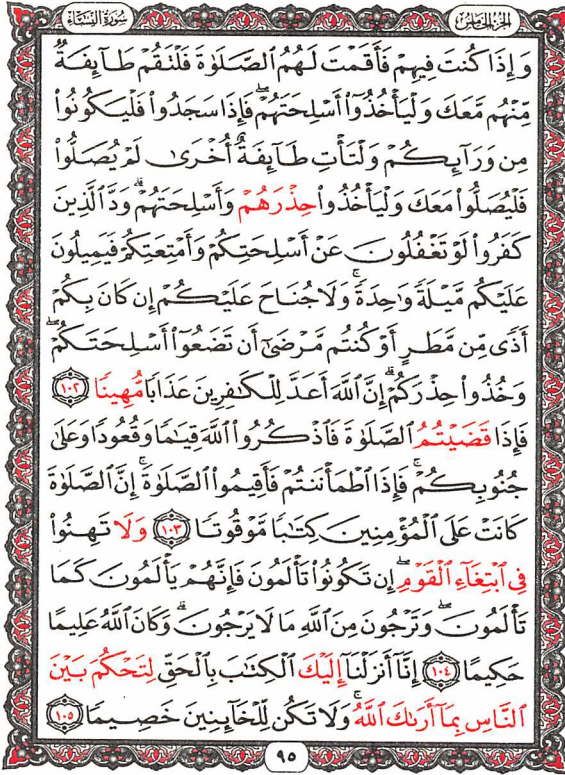 الجزء الخامس
سورة النساء
وَإِذَا كُنتَ فِيهِمْ فَأَقَمْتَ لَهُمُ ٱلصَّلَوٰةَ فَلْتَقُمْ طَآئِفَةٌ
مِّنْهُم مَّعَكَ وَلْيَأْخُذُوٓا۟ أَسْلِحَتَهُمْ ۖ فَإِذَا سَجَدُوا۟ فَلْيَكُونُوا۟
مِن وَرَآئِكُمْ وَلْتَأْتِ طَآئِفَةٌ أُخْرَىٰ لَمْ يُصَلُّوا۟
فَلْيُصَلُّوا۟ مَعَكَ وَلْيَأْخُذُوا۟ حِذْرَهُمْ وَأَسْلِحَتَهُمْ ۗ وَدَّ ٱلَّذِينَ
كَفَرُوا۟ لَوْ تَغْفُلُونَ عَنْ أَسْلِحَتِكُمْ وَأَمْتِعَتِكُمْ فَيَمِيلُونَ
عَلَيْكُم مَّيْلَةً وَٰحِدَةً ۚ وَلَا جُنَاحَ عَلَيْكُمْ إِن كَانَ بِكُمْ
أَذًى مِّن مَّطَرٍ أَوْ كُنتُم مَّرْضَىٰٓ أَن تَضَعُوٓا۟ أَسْلِحَتَكُمْ ۖ
وَخُذُوا۟ حِذْرَكُمْ ۗ إِنَّ ٱللَّهَ أَعَدَّ لِلْكَٰفِرِينَ عَذَابًا مُّهِينًا ١٠٢
فَإِذَا قَضَيْتُمُ ٱلصَّلَوٰةَ فَٱذْكُرُوا۟ ٱللَّهَ قِيَٰمًا وَقُعُودًا وَعَلَىٰ
جُنُوبِكُمْ ۚ فَإِذَا ٱطْمَأْنَنتُمْ فَأَقِيمُوا۟ ٱلصَّلَوٰةَ ۚ إِنَّ ٱلصَّلَوٰةَ
كَانَتْ عَلَى ٱلْمُؤْمِنِينَ كِتَٰبًا مَّوْقُوتًا ١٠٣ وَلَا تَهِنُوا۟
فِى ٱبْتِغَآءِ ٱلْقَوْمِ ۖ إِن تَكُونُوا۟ تَأْلَمُونَ فَإِنَّهُمْ يَأْلَمُونَ كَمَا
تَأْلَمُونَ ۖ وَتَرْجُونَ مِنَ ٱللَّهِ مَا لَا يَرْجُونَ ۗ وَكَانَ ٱللَّهُ عَلِيمًا
حَكِيمًا ١٠٤ إِنَّآ أَنزَلْنَآ إِلَيْكَ ٱلْكِتَٰبَ بِٱلْحَقِّ لِتَحْكُمَ بَيْنَ
ٱلنَّاسِ بِمَآ أَرَىٰكَ ٱللَّهُ ۚ وَلَا تَكُن لِّلْخَآئِنِينَ خَصِيمًا ١٠٥
٩٥